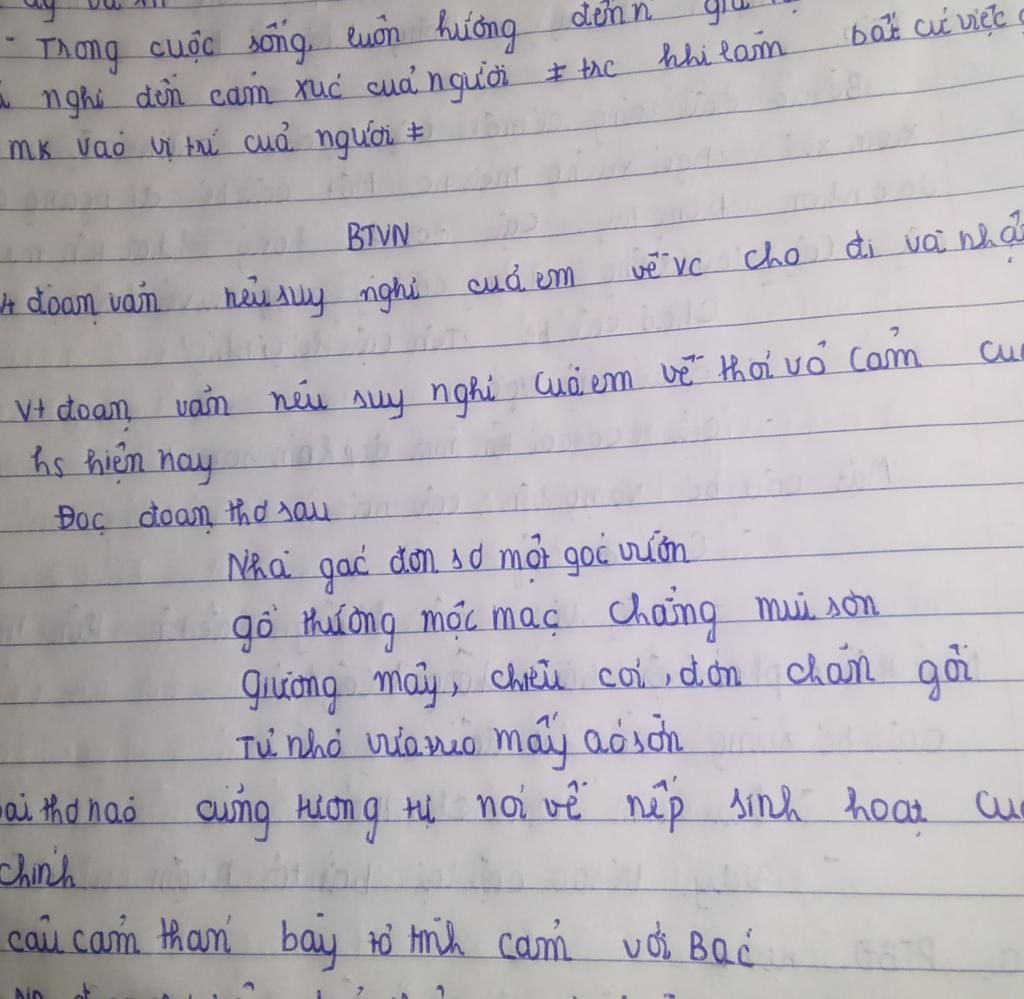 - Trong cuộc sống, luôn hướng đến
nghĩ đến cảm xúc của người ≠ trc khi làm bất cứ việc
mk vào vị trí của người ≠
BTVN
đoạn văn nêu suy nghĩ của em về vc cho đi và nhậ
Vt đoạn văn nêu suy nghĩ của em về thói vô cảm củ
hs hiện nay
Đọc đoạn thơ sau
Nhà gác đơn sơ một góc vườn
gỗ thường mộc mạc chẳng mùi sơn
Giường mây, chiếu cói, đơn chăn gối
Tủ nhỏ vừa treo mấy áo sờn
ài thơ nào cũng tương tự nói về nếp sinh hoạt củ
chính
câu cảm thán bày tỏ tình cảm với Bác